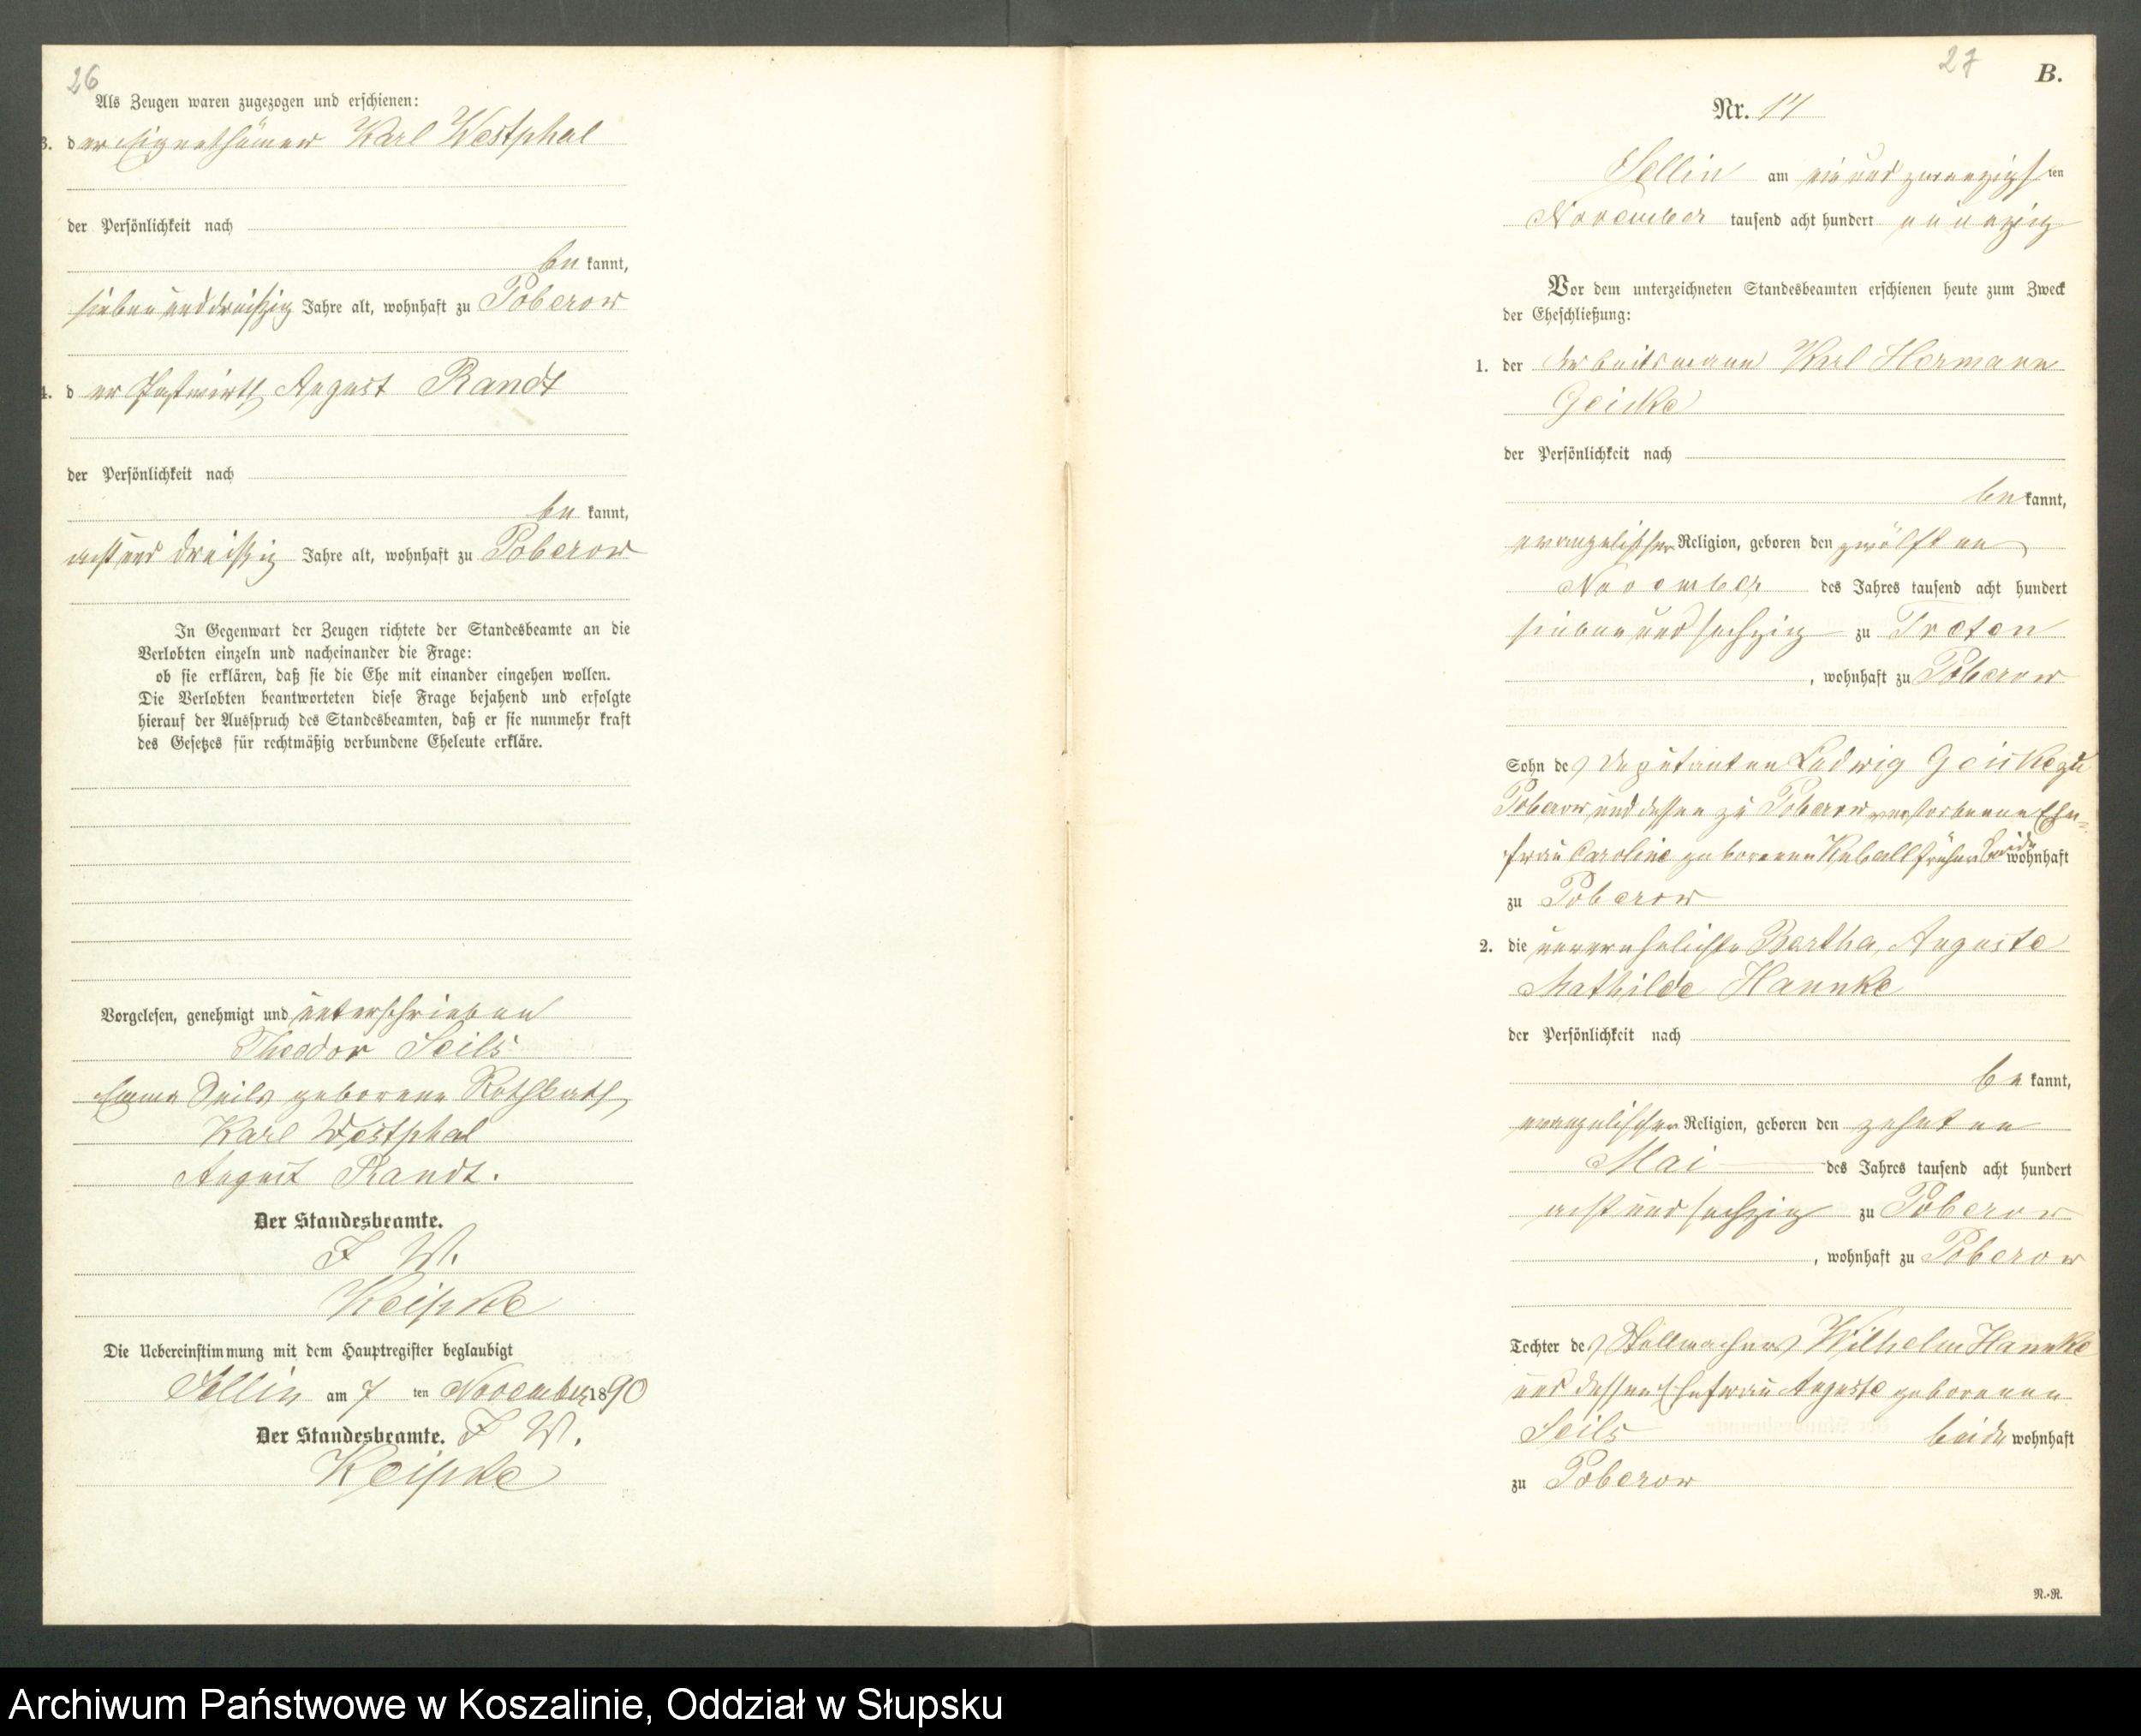 26
Als Zeugen waren zugezogen und erschienen:
3. der Eigenthümer Karl Westphal
der Persönlichkeit nach
be kannt,
sieben und dreißig Jahre alt, wohnhaft zu Poberow
4. der Gastwirth August Randt
der Persönlichkeit nach
be kannt,
acht und dreißig Jahre alt, wohnhaft zu Poberow
In Gegenwart der Zeugen richtete der Standesbeamte an die
Verlobten einzeln und nacheinander die Frage:
ob sie erklären, daß sie die Ehe mit einander eingehen wollen.
Die Verlobten beantworteten diese Frage bejahend und erfolgte
hierauf der Ausspruch des Standesbeamten, daß er sie nunmehr kraft
des Gesetzes für rechtmäßig verbundene Eheleute erkläre.
Vorgelesen, genehmigt und unterschrieben
Theodor Seils
Emma Seils geborene
Karl Westphal
August Randt.
Der Standesbeamte.
J W.
Die Uebereinstimmung mit dem Hauptregister beglaubigt
Sellin am 7 ten November 1890
Der Standesbeamte. J W.
27
B.
Nr. 14
Sellin am ein und zwanzigsten
November tausend acht hundert neunzig
Vor dem unterzeichneten Standesbeamten erschienen heute zum Zweck
der Eheschließung:
1. der Arbeitsmann Karl Hermann
Geicke
der Persönlichkeit nach
be kannt,
evangelischer Religion, geboren den zwölften
November des Jahres tausend acht hundert
sieben und sechzig zu Treten
, wohnhaft zu Poberow
Sohn des Deputanten Ludwig Geicke zu
Poberow und dessen zu Poberow verstorbenen Ehe=
frau Caroline geborenen früher beide wohnhaft
zu Poberow
2. die unverehelichte Bertha Auguste
Mathilde Hannke
der Persönlichkeit nach
be kannt,
evangelischer Religion, geboren den zehnten
Mai des Jahres tausend acht hundert
acht und sechzig zu Poberow
, wohnhaft zu Poberow
Tochter des Stellmachers Wilhelm Hannke
und dessen Ehefrau Auguste geborenen
Seils beide wohnhaft
zu Poberow
N.-R.
Archiwum Państwowe w Koszalinie, Oddział w Słupsku